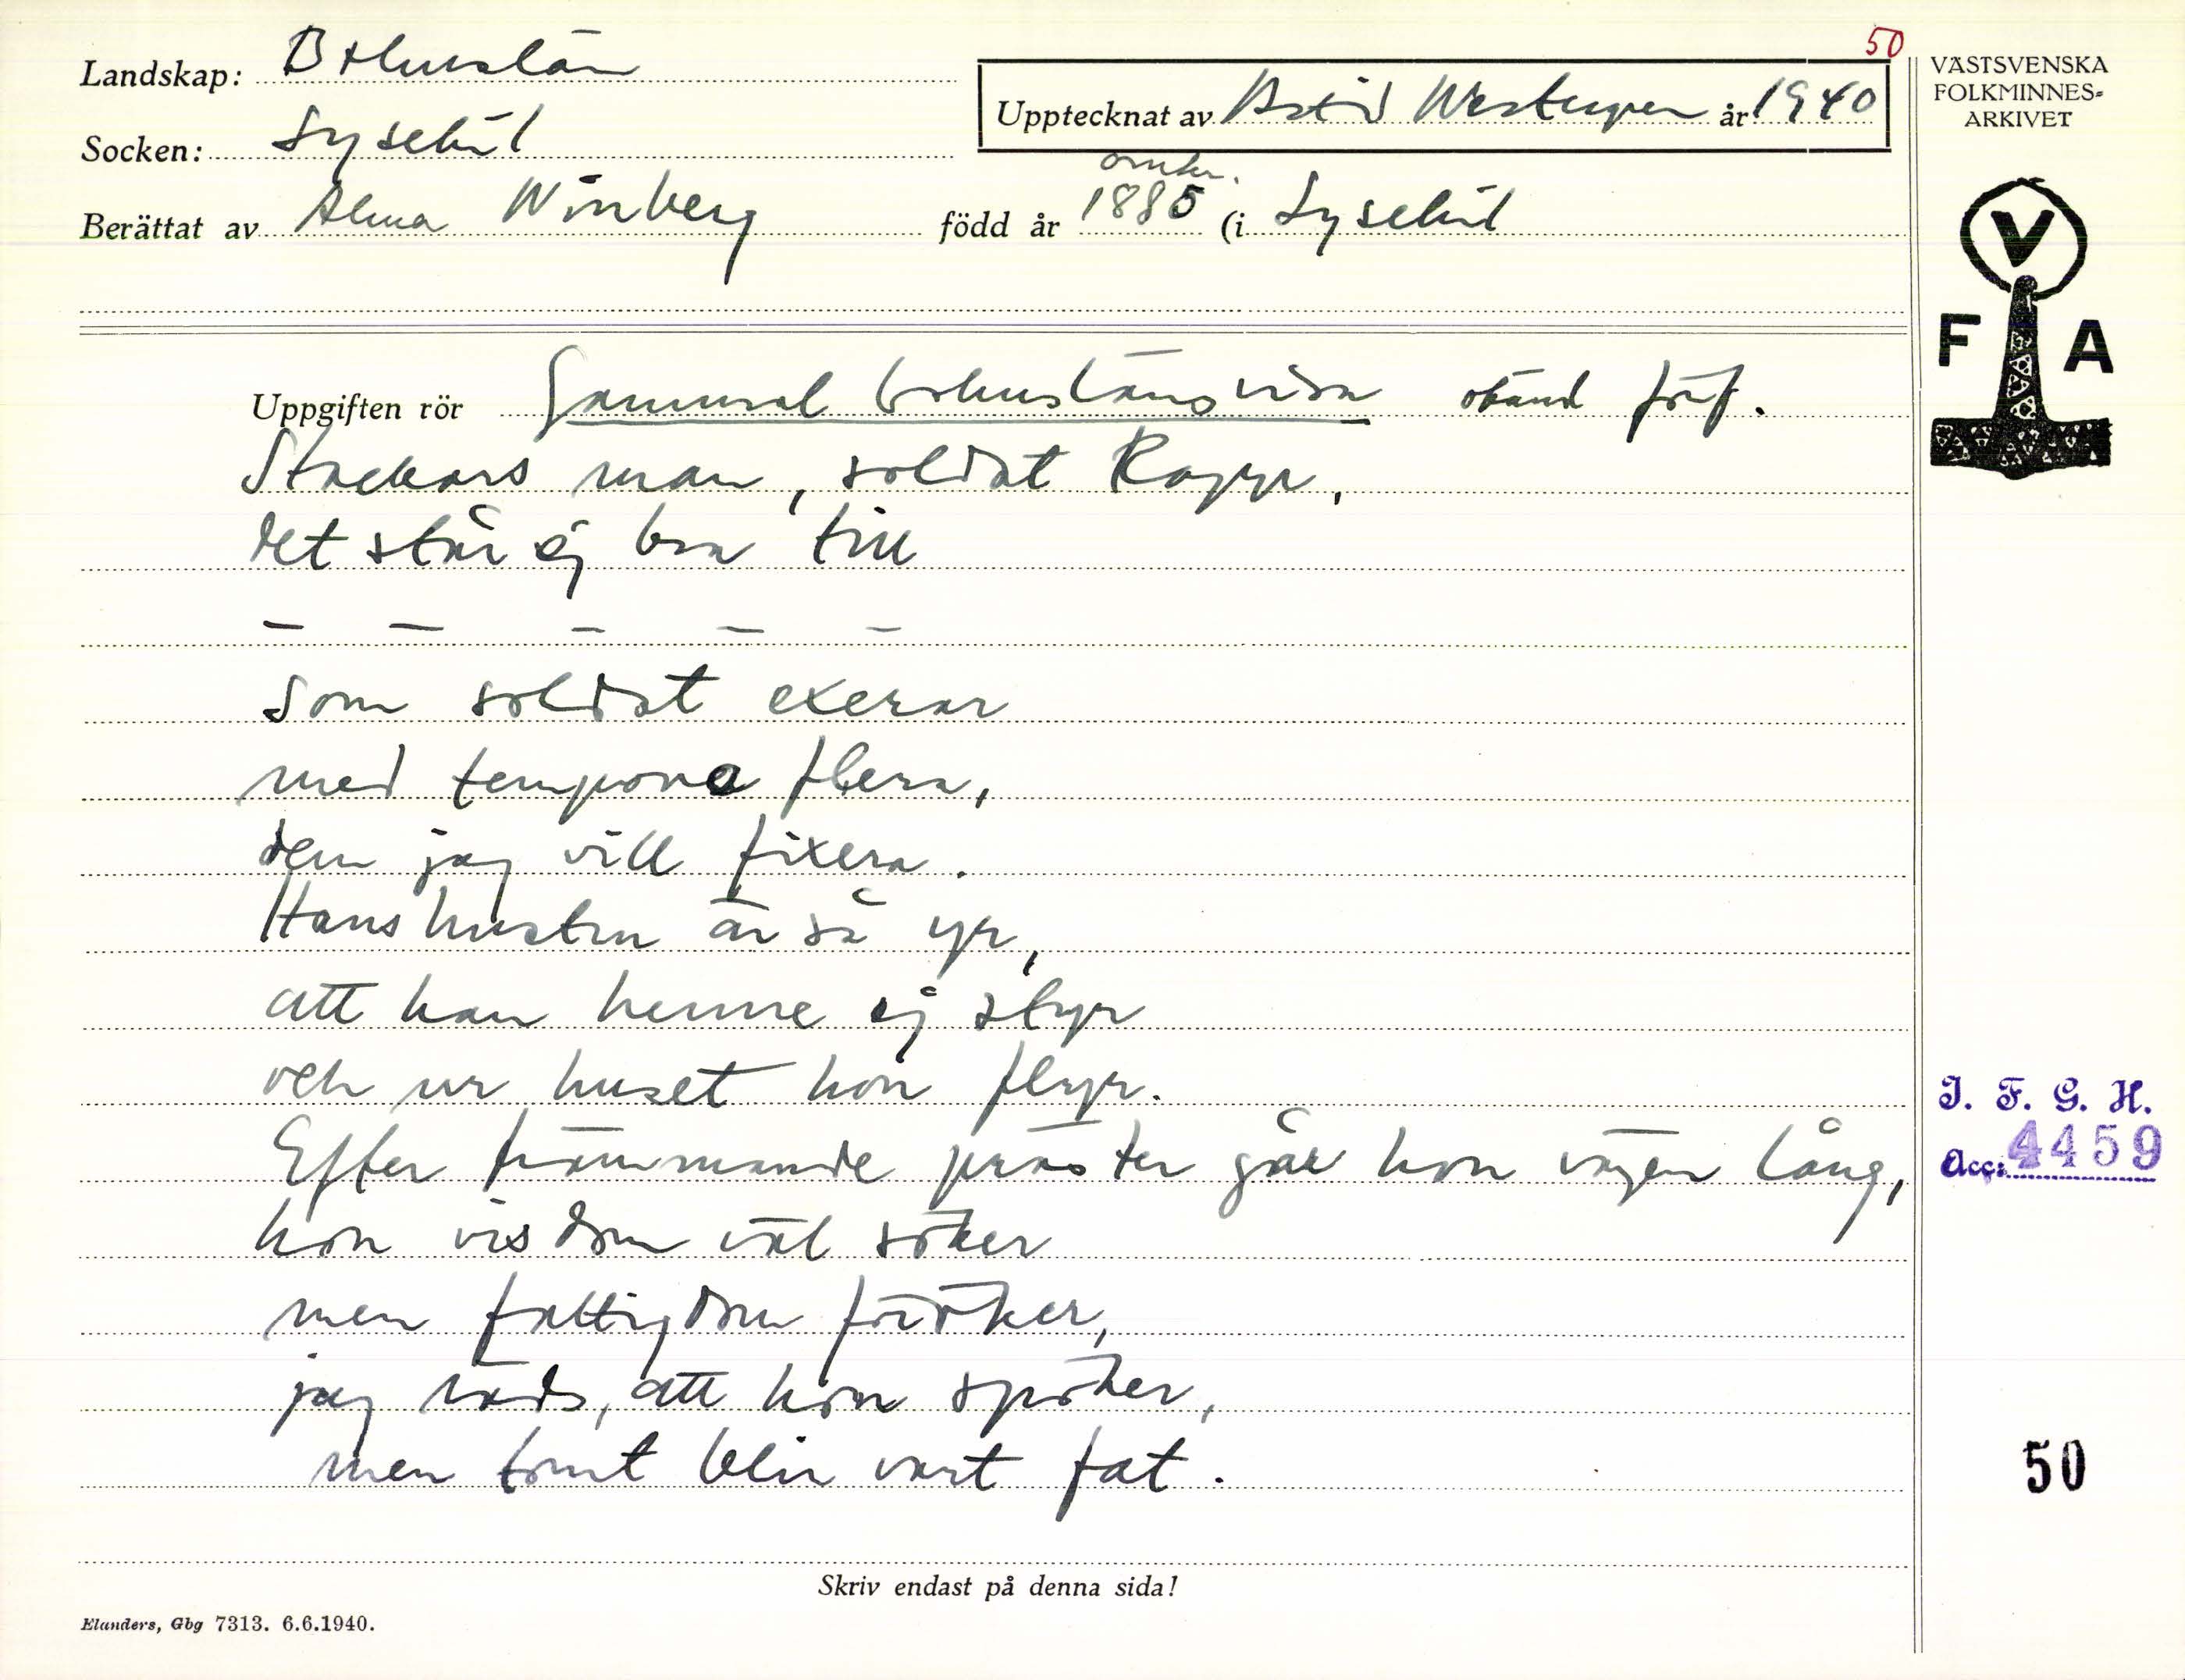 50
Landskap: Bohuslän
Socken: Lysekil
Upptecknat av Astrid Westergren år 1940
omkr.
Berättat av Alma Winberg född år 1885 (i Lysekil
VÄSTSVENSKA
FOLKMINNES-
ARKIVET
V
F A
Uppgiften rör Gammal bohuslänsvisa okänd förf.
Stackars man, soldat Rapp,
det står ej bra till
— — — — —
Som soldat exerar
med tempona flera,
dem jag vill fixera.
Hans hustru är så yr,
att han henne ej styr
och ur huset hon flyr.
Efter främmande präster går hon vägen lång,
hon visdom väl söker
men fattigdom föröker,
jag räds, att hon spöker,
men tomt blir vart fat.
I. F. G. H.
Acc: 4459
50
Skriv endast på denna sida!
Elanders, Gbg 7313. 6.6.1940.